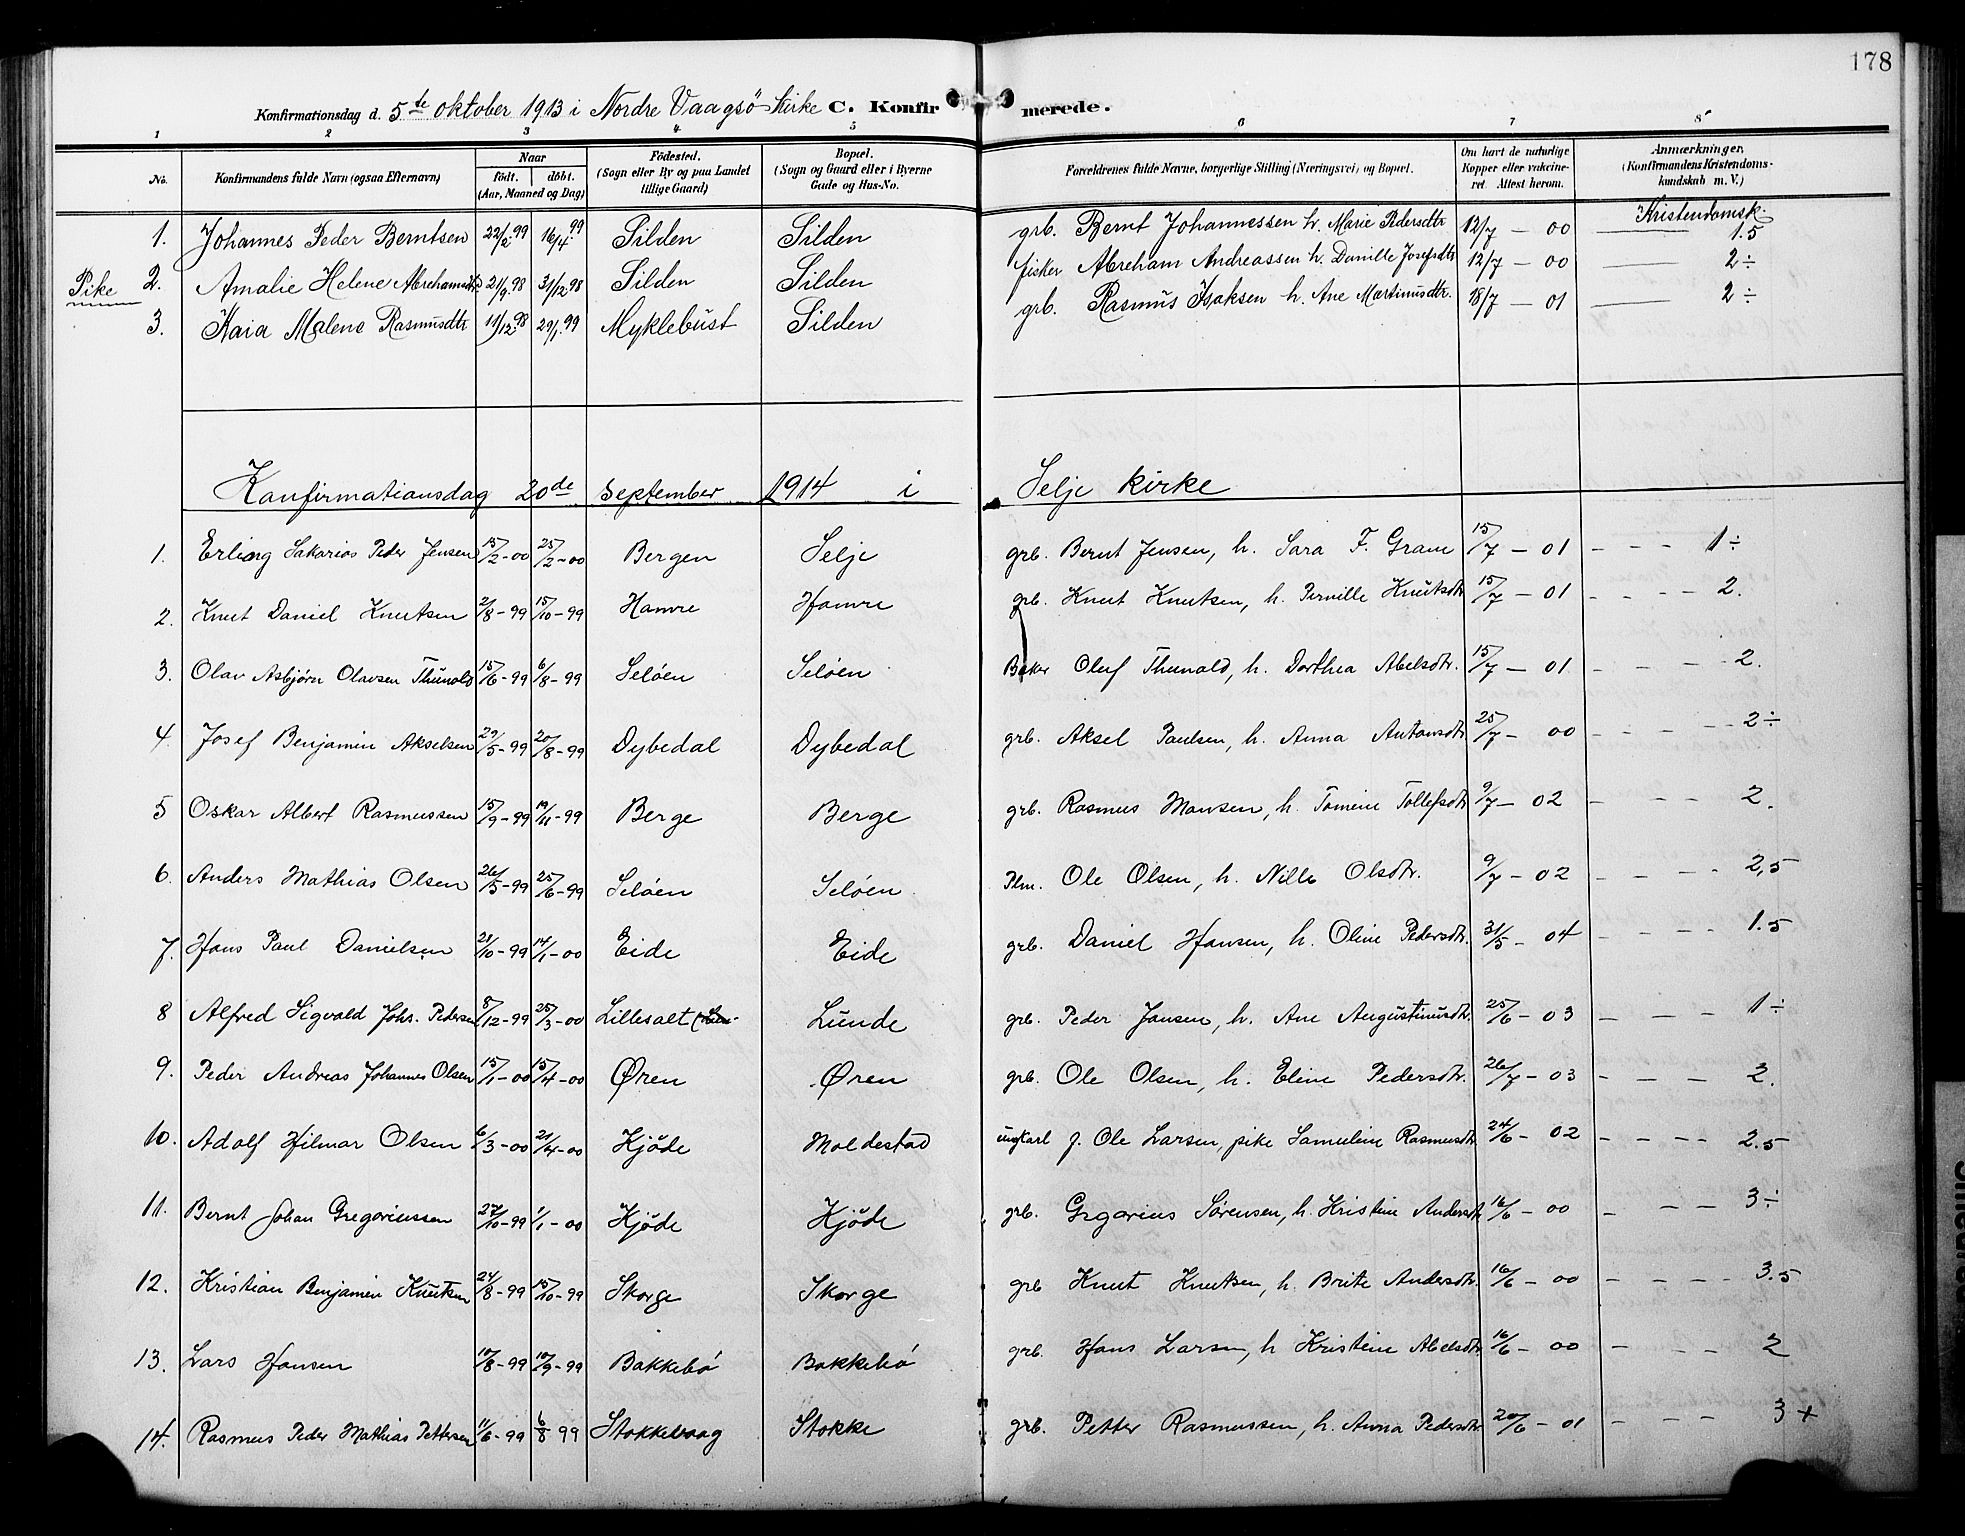 178
Konfirmationsdag d. 5te oktober 1913 i Nordre Vaagsö kirke C. Konfirmerede.
1 2 3 4 5 6 7 8
No. Konfirmandens fulde Navn (ogsaa Efternavn) Naar födt. döbt. (Aar, Maaned og Dag) Födested. (Sogn eller By og paa Landet tillige Gaard) Bopæl. (Sogn og Gaard eller i Byerne Gade og Hus-No. Forældrenes fulde Navne, borgerlige Stilling (Næringsvei) og Bopæl. Om havt de naturlige Kopper eller vakcineret. Attest herom. Anmærkninger. (Konfirmandens Kristendomskundskab m. V.)
1. Johannes Peder Berntsen 22/2 99 16/4 99 Silden Silden grb. Bernt Johannessen h. Marie Pedersdtr 12/7 — 00 Kristendomsk. 1.5
Pike 2. Amalie Helene Abrehamsdtr. 21/9 98 31/12 98 Silden Silden fisker Abreham Andreassen h. Danille Josefsdtr 12/7 — 00 — 2÷
3. Kaia Malene Rasmusdtr 11/12 98 29/1 99 Myklebust Silden grb. Rasmus Isaksen h. Ane Martinusdtr. 18/7 — 01 — 2÷
Konfirmationsdag 20de september 1914 i Selje kirke
1. Erling Sakarias Peder Jensen 15/2-00 25/2-00 Bergen Selje grb. Bernt Jensen, h. Sara F. Gram 15/7 — 01 - - - 1÷
2. Knut Daniel Knutsen 2/8-99 15/10-99 Hamre Hamre grb. Knut Knutsen, h. Pernille Knutsdtr 15/7 — 01 - - - 2.
3. Olav Asbjørn Olavsen Thunold 15/6-99 6/8-99 Seløen Seløen Baker Oluf Thunold, h. Dorthea Abelsdtr. 15/7 — 01 - - - 2.
4. Josef Benjamin Akselsen 29/5-99 20/8-99 Dybedal Dybedal grb. Aksel Paulsen, h. Anna Antonsdtr 25/7 — 00 - - - 2÷
5 Oskar Albert Rasmussen 15/9-99 19/11-99 Berge Berge grb. Rasmus Monsen, h. Tomine Tollefsdtr 9/7 — 02 - - - 2.
6. Anders Mathias Olsen 26/5-99 25/6-99 Seløen Seløen Plm. Ole Olsen, h. Nille Olsdtr. 9/7 — 02 - - - 2,5
7. Hans Paul Danielsen 21/10-99 14/1-00 Eide Eide grb. Daniel Hansen, h. Oline Pedersdtr. 31/5 — 04 - - - 1.5
8 Alfred Sigvald Johs. Pedersen 8/12-99 25/3-00 Lillesalt Lunde grb. Peder Jansen, h. Ane Augustinusdtr. 25/6 — 03 - - - 1÷
9. Peder Andreas Johannes Olsen 15/1-00 15/4-00 Øren Øren grb. Ole Olsen, h. Eline Pedersdtr. 26/7 — 03 - - - 2.
10. Adolf Hilmar Olsen 6/3-00 21/4-00 Kjøde Moldestad ungkarl f. Ole Larsen, pike Samuline Rasmusdtr. 24/6 — 02 - - - 2.5
11. Bernt Johan Gregoriussen 27/10-99 1/1-00 Kjøde Kjøde grb. Grgorius Sørensen, h. Kristine Andersdtr 16/6 — 00 - - - 3÷
12. Kristian Benjamin Knutsen 24/8-99 15/10-99 Skorge Skorge grb Knut Knutsen, h. Brite Andersdtr. 16/6 — 00 - - - 3.5
13. Lars Hansen 10/8-99 10/9-99 Bakkebø Bakkebø grb. Hans Larsen, h Kristine Abelsdtr 16/6 — 00 - - - 2
14. Rasmus Peder Mathias Pettersen 11/6-99 6/8 99 Stokkevaag Stokke grb. Petter Rasmussen, h. Anna Pedersdtr. 20/6 — 01 - - - 3+